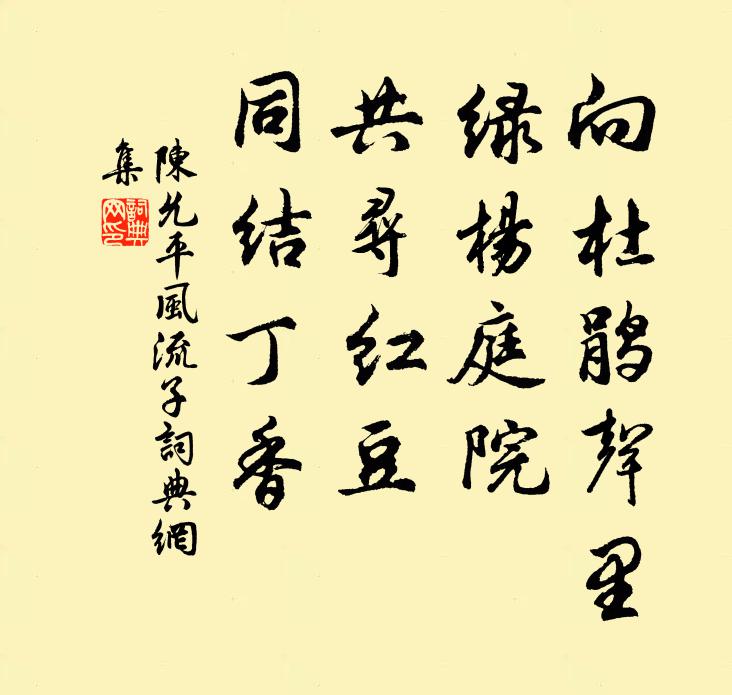 向杜鹃聲里
绿楊庭院
共尋红豆
同结丁香
陳允平風流子詞典網
集
詞典
网印